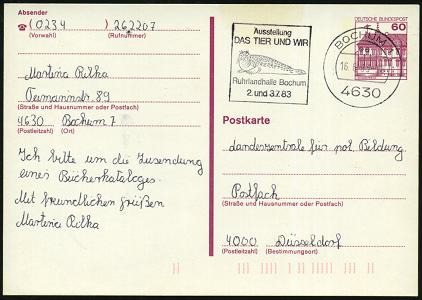 Absender
(0234) 262207
(Vorwahl) (Rufnummer)
Martina Pilka
89
(Straße und Hausnummer oder Postfach)
4630 Bochum 7
(Postleitzahl) (Ort)
Ich bitte um die Zusendung
eines Bücherkataloges.
Mit freundlichen Grüßen
Martina Pilka
Ausstellung
DAS TIER UND WIR
Ruhrlandhalle Bochum
2. und 3.7.83
BOCHUM
4630
DEUTSCHE BUNDESPOST
60
Postkarte
Landeszentrale für pol. Bildung
Postfach
(Straße und Hausnummer oder Postfach)
4000 Düsseldorf
(Postleitzahl) (Bestimmungsort)